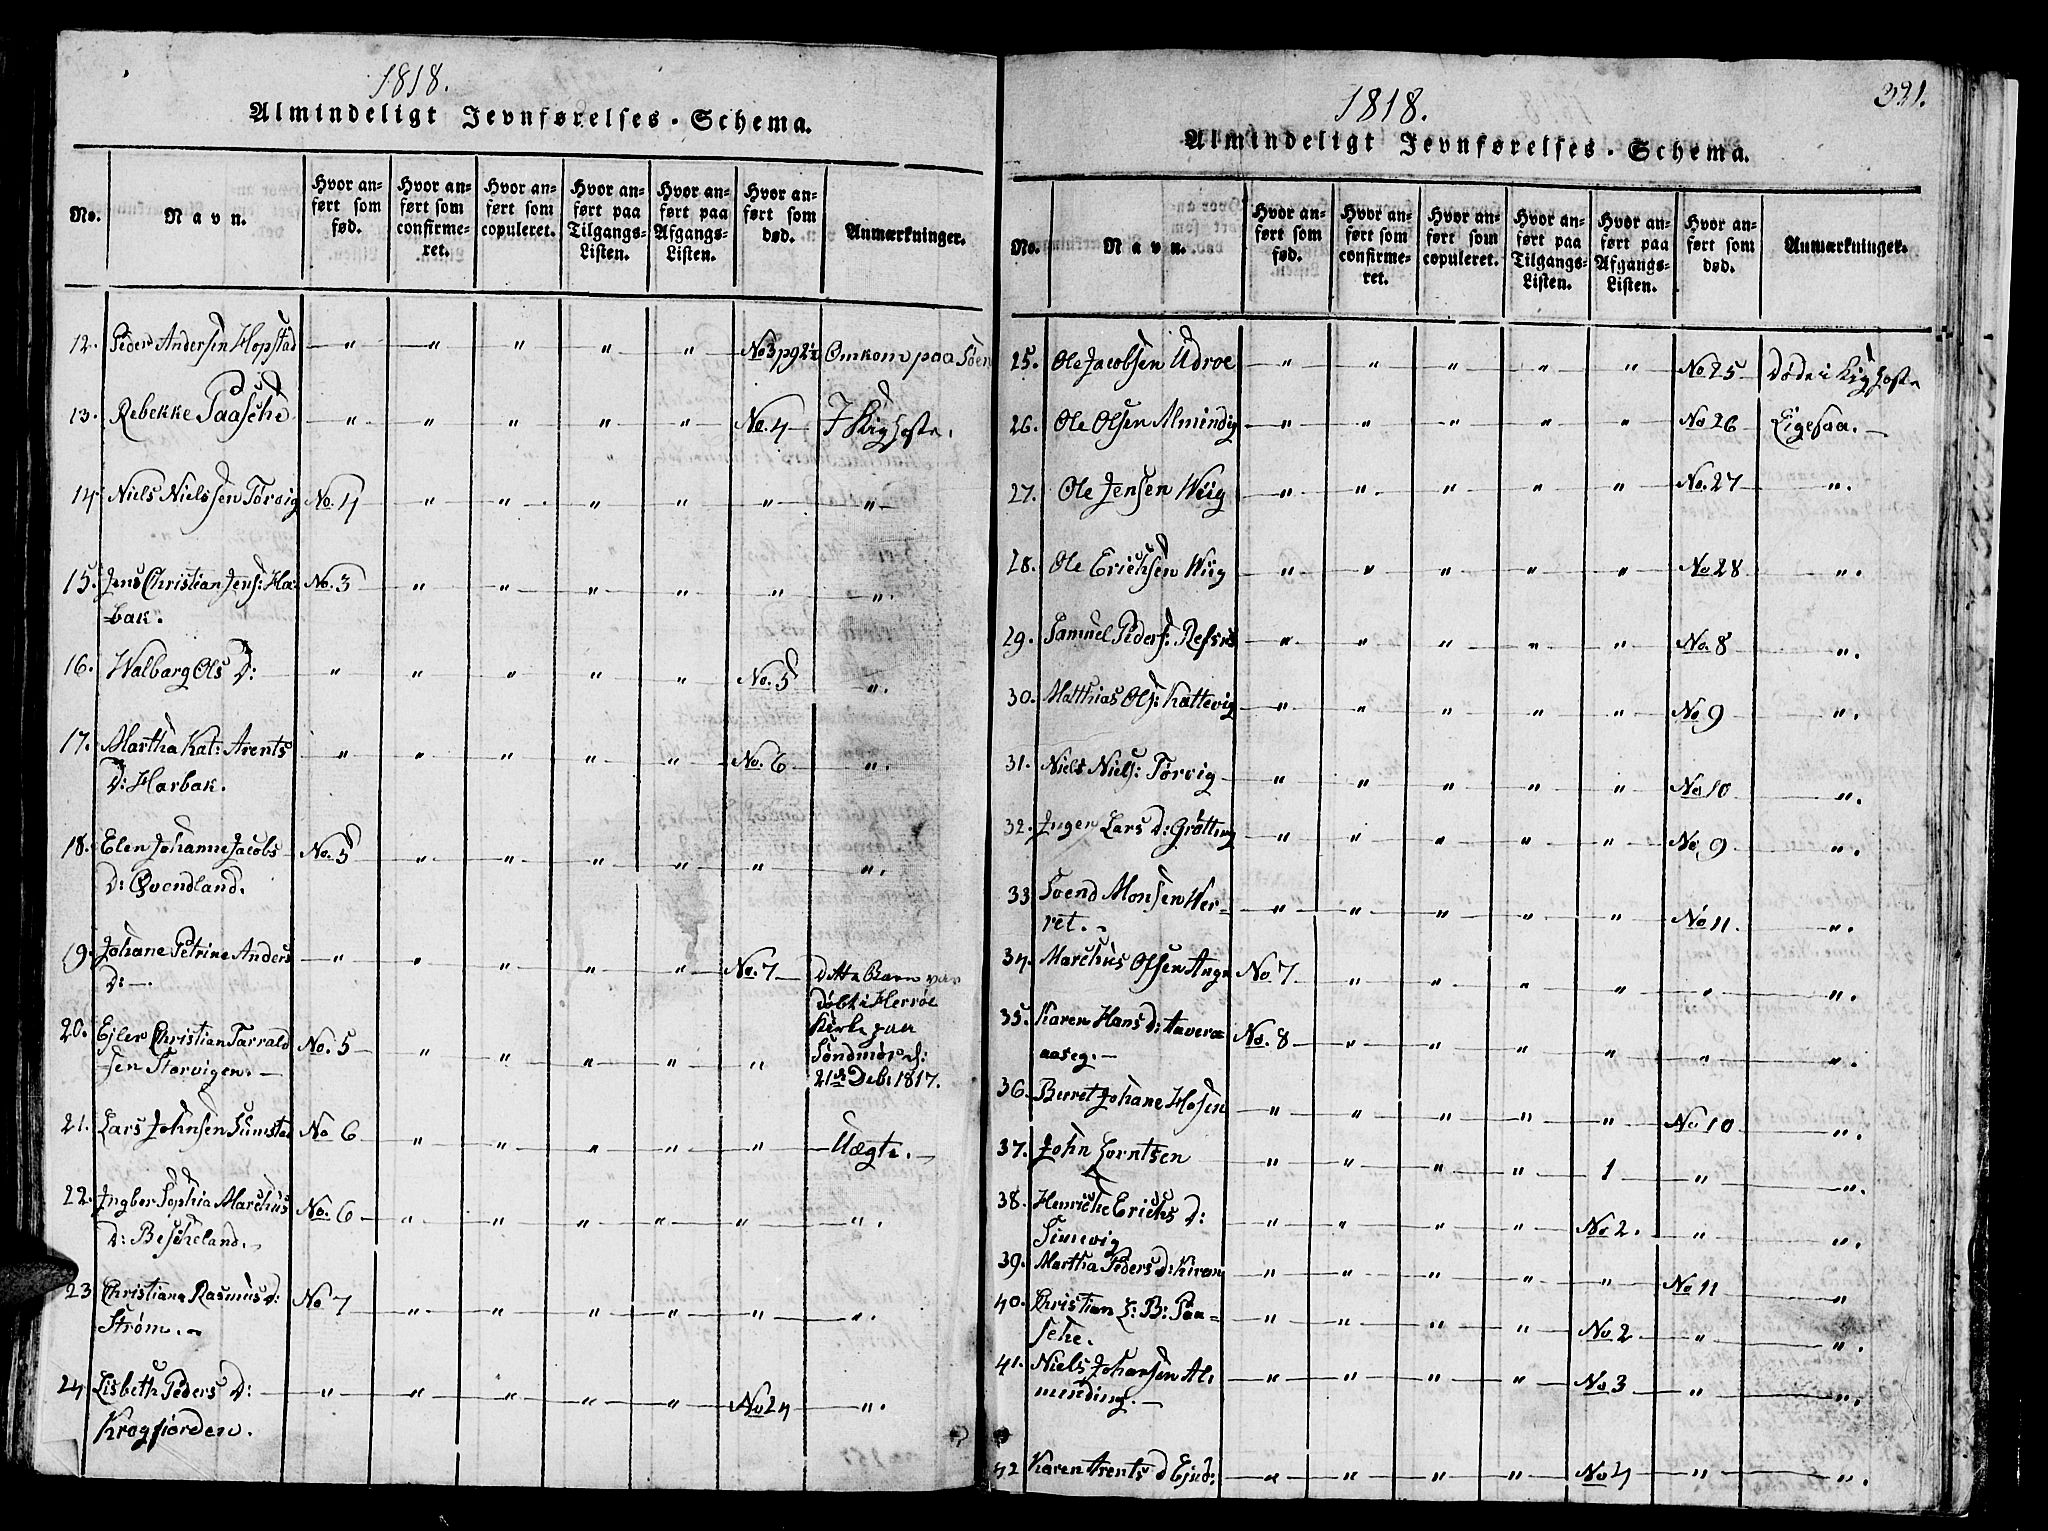 1818.
Almindeligt Jevnførelses-Schema.
No. Navn. Hvor anført som fød. Hvor anført som confirmeret. Hvor anført som copuleret. Hvor anført paa Tilgangs-Listen. Hvor anført paa Afgangs-Listen. Hvor anført som død. Anmærkninger.
12. Peder Andersen Hopstad " " " " " No 3 pg 2 Omkom paa Søen
13. Rebekke Paasche " " " " " No. 4 I Kighoste.
14. Niels Nielssen Torvig No. 4 " " " " " "
15. Jens Christian Jens: Har- No. 3 " " " " " ".
bak.
16. Walbarg Ols D: " " " " " No. 5 ".
17. Martha Kat: Arents " " " " " No. 6 ".
D: Harbak.
18. Elen Johanne Jacobs No. 5 " " " " " ".
D: Qvendland.
19. Johane Petrine Anders " " " " " No. 7 Dette Barn var
D: døbt i Herrøe
Kirke paa
20. Ejler Christian Tarrald No. 5 " " " " " Søndmør d:
sen Storvigen. 21de Deb. 1817.
21. Lars Johnsen Sumstad No 6 " " " " " Uægte.
22. Ingber Sophia Marchus No. 6 " " " " " ".
D: Bescheland.
23 Christiana Rasmus D: No 7 " " " " " ".
Strøm.
24 Lisbeth Peders D: " " " " " No 24 ".
Kragfjorden.
321.
1818.
Almindeligt Jevnførelses-Schema.
No. Navn. Hvor anført som fød. Hvor anført som confirmeret. Hvor anført som copuleret. Hvor anført paa Tilgangs-Listen. Hvor anført paa Afgangs-Listen. Hvor anført som død. Anmærkninger.
25. Ole Jacobsen Udroe " " " " " No 25 Døde i Kighoste
26. Ole Olsen Almindig " " " " " No 26 Ligesaa.
27. Ole Jensen Wiig " " " " " No. 27 ".
28. Ole Erichsen Wiig " " " " " No 28 ".
29. Samuel Peders: Refsnes " " " " " No. 8 ".
30. Matthias Ols: Kattevig " " " " " No 9 ".
31. Niels Niels: Torvig " " " " " No 10 ".
32. Inger Lars D: Grötting " " " " " No 9 ".
33 Svend Monsen Wer- " " " " " No 11. ".
ret.
34. Marchus Olsen No 7 " " " " " ".
35. Karen Hans D: No. 8 " " " " " ".
36. Berret Johane Hosen " " " " " No 10 ".
37. John Lorntsen " " " " 1 " ".
38. Henriche Erichs D: " " " " No 2. " ".
Simevig
39. Martha Peders D: " " " " " No 11 "
40. Christian L: B: Paa- " " " " No 2 " ".
sche.
41. Niels Johansen Al- " " " " No 3 " ".
minding.
42 Karen Arents D Ejnd: " " " " No 4 " ".